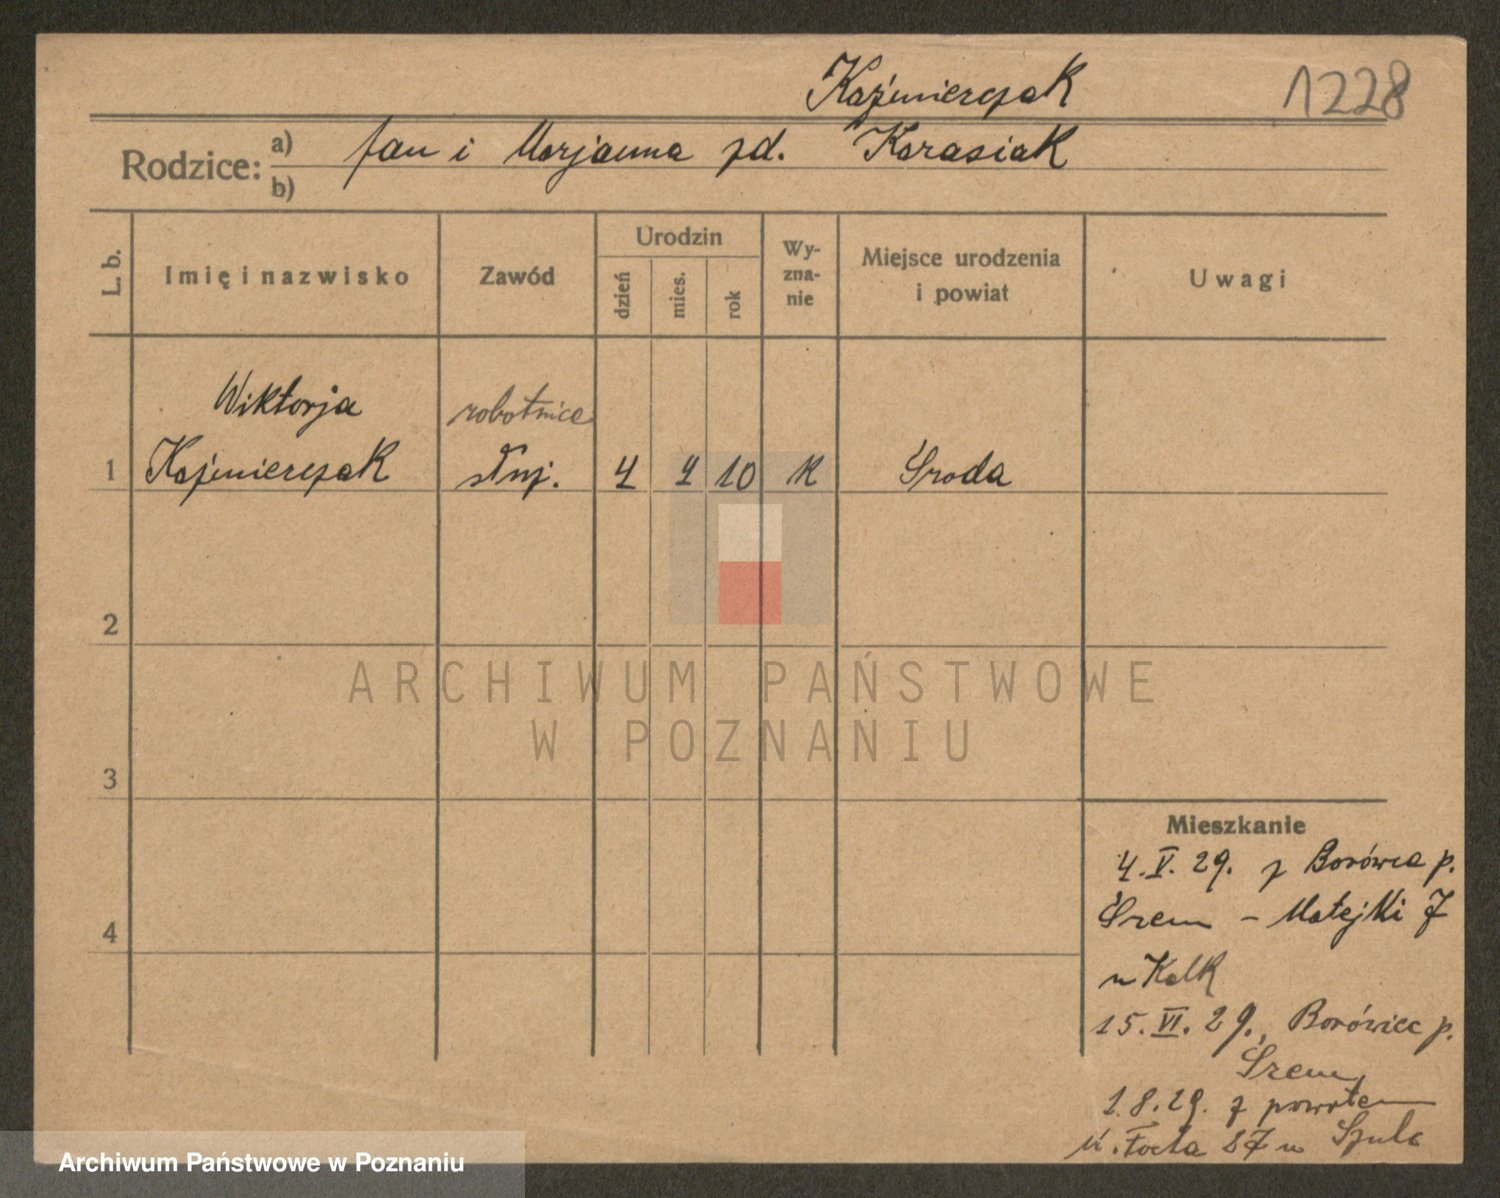 Kaźmierczak
1228
Rodzice: a) Jan i Marjanna zd. Karasiak
b)
L. b.
Imię i nazwisko
Zawód
Urodzin
dzień
mies.
rok
Wy-
zna-
nie
Miejsce urodzenia
i powiat
Uwagi
Wiktorja
robotnica
1
Kaźmierczak
służ.
4
10
K
Środa
2
3
4
ARCHIWUM PAŃSTWOWE
W POZNANIU
Mieszkanie
4. V. 29. z Borówca p.
Śrem - Matejki 7
u Kalk
15. VI. 29., Borówiec p.
Śrem
1.8.29. z powrotem
u Szulc
Archiwum Państwowe w Poznaniu